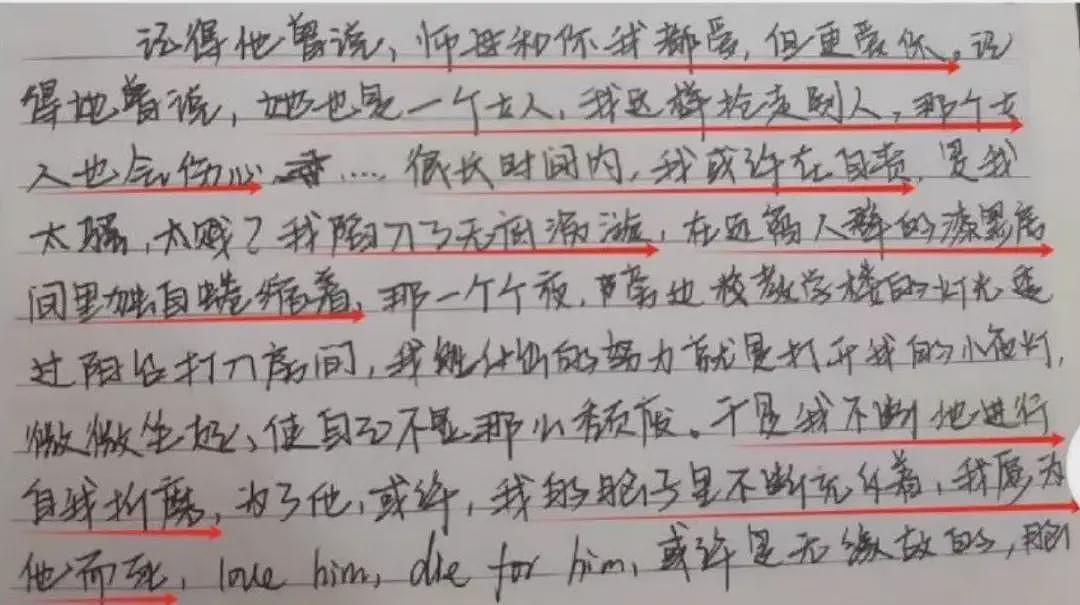 记得他曾说，师母和你我都爱，但更爱你。记
得他曾说，她也是一个女人，我这样抢走别人，那个女
人也会伤心 ..... 很长时间内，我或许在自责，是我
太骚，太贱？我陷入了无底漩涡，在远离人群的漆黑房
间里独自蜷缩着，那一个个夜，隔着教学楼的灯光透
过阳台打入房间，我能付出的努力就是打开我的小夜灯，
微微坐起，使自己不显那么颓废。于是我不断地进行
自我折磨，为了他，或许，我的脑子里不断充斥着，我愿为
他而死，love him, die for him, 或许是无缘故的，脑